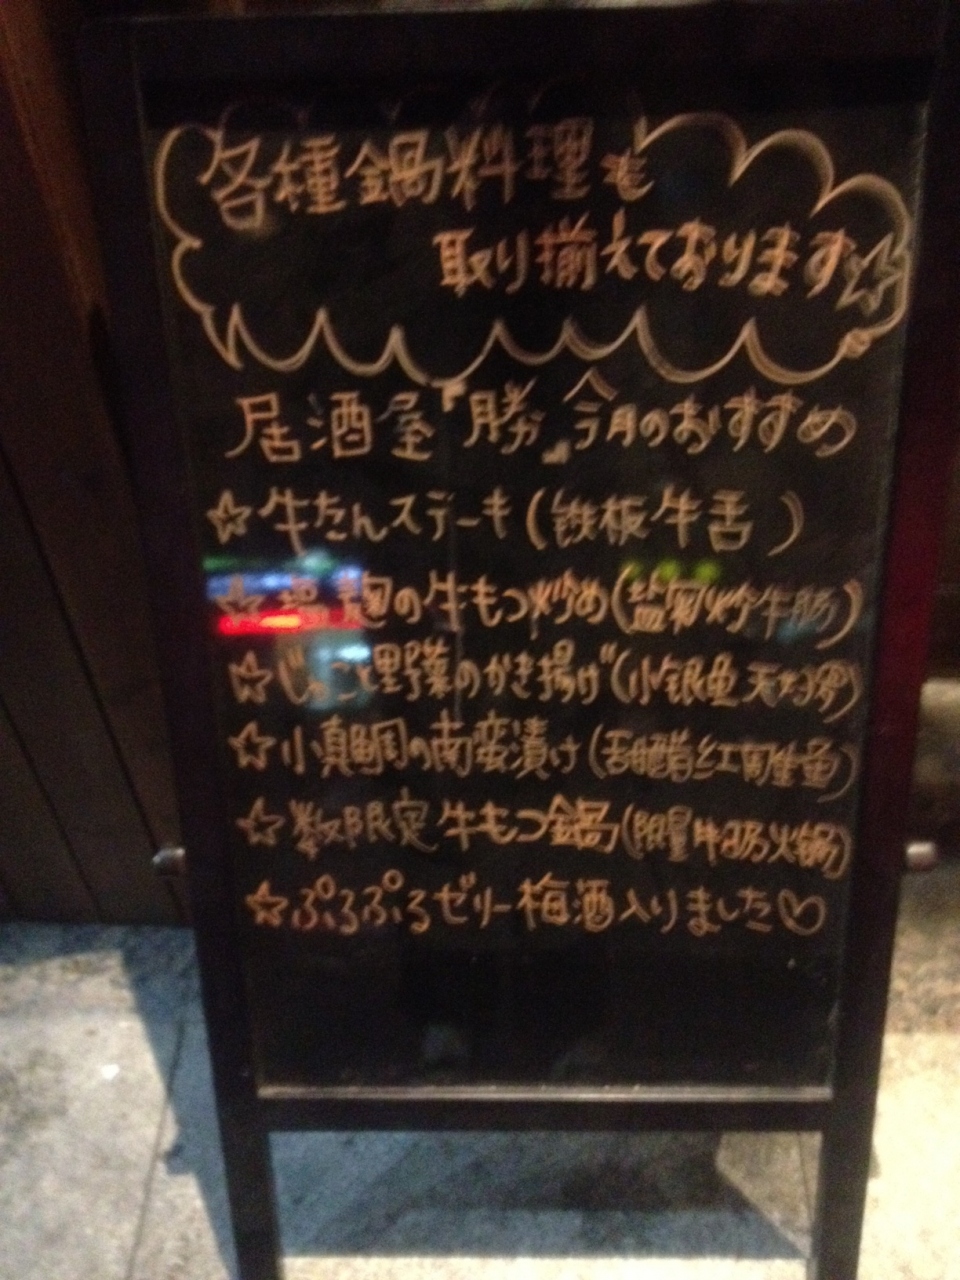 各種鍋料理も
取り揃えております☆
居酒屋『勝』今月のおすすめ
☆牛たんステーキ(鉄板牛舌)
☆塩麹の牛もつ炒め(塩麹炒牛腸)
☆じゃこと野菜のかき揚げ(小銀魚天婦羅)
☆小真鯛の南蛮漬け(甜醋紅周生魚)
☆数限定牛もつ鍋(限量牛腸火鍋)
☆ぷるぷるゼリー梅酒入りました♡